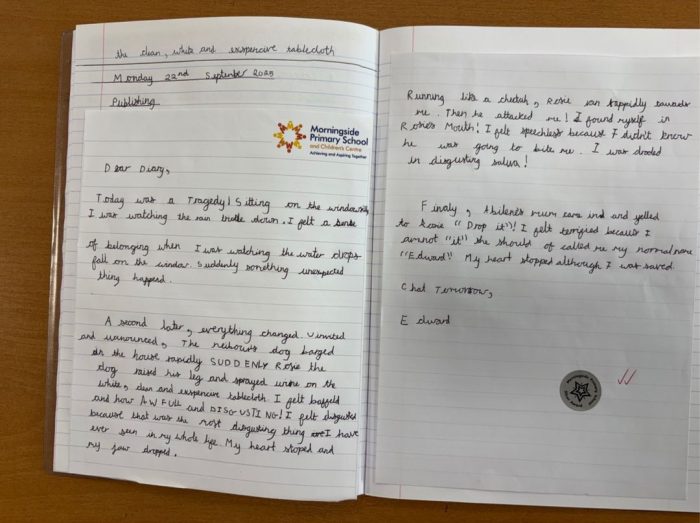 the clean, white and exspencive tablecloth
Monday 22nd September 2025
Publishing
Morningside
Primary School
and Children's Centre
Achieving and Aspiring Together
Dear Diary,
Today was a Tragedy! Sitting on the windowsill
I was watching the rain trickle down. I felt a sense
of belonging when I was watching the water drops
fall on the window. Suddenly something unexpected
thing happend.
A second later, everything changed. Uninvited
and unanounced, The neihours dog barged
in the house rapidly SUDDENLY Rosie the
dog raised his leg and sprayed urine on the
white, clean and exspencive tablecloth. I felt baffeld
and how AWFULL and DISGUSTING! I felt disgusted
because that was the most disgusting thing I have
ever seen in my whole life. My heart stoped and
my jaw dropped.
Running like a cheetah, Rosie ran rappidly towards
me. Then he attacked me! I found myself in
Rosies Mouth! I felt speechless because I didn't know
he was going to bite me. I was drooled
in disgusting saliva!
Finaly, Abilene's mum came and yelled
to Rosie "Drop it"! I felt terrified because I
am not "it" she should of called me my normal name
"Edward" My heart stopped although I was saved.
Chat Tomorrow,
Edward